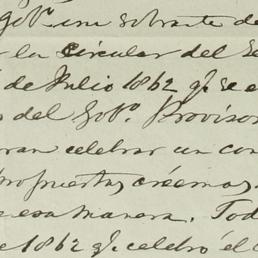 Gobº. una sobrante de
la Circular del Se
de Julio 1862 qe. se e
del Gobº. Provisor
celebrar un con
propuestas, créemos
esa manera. Tod
1862 qe. celebró el